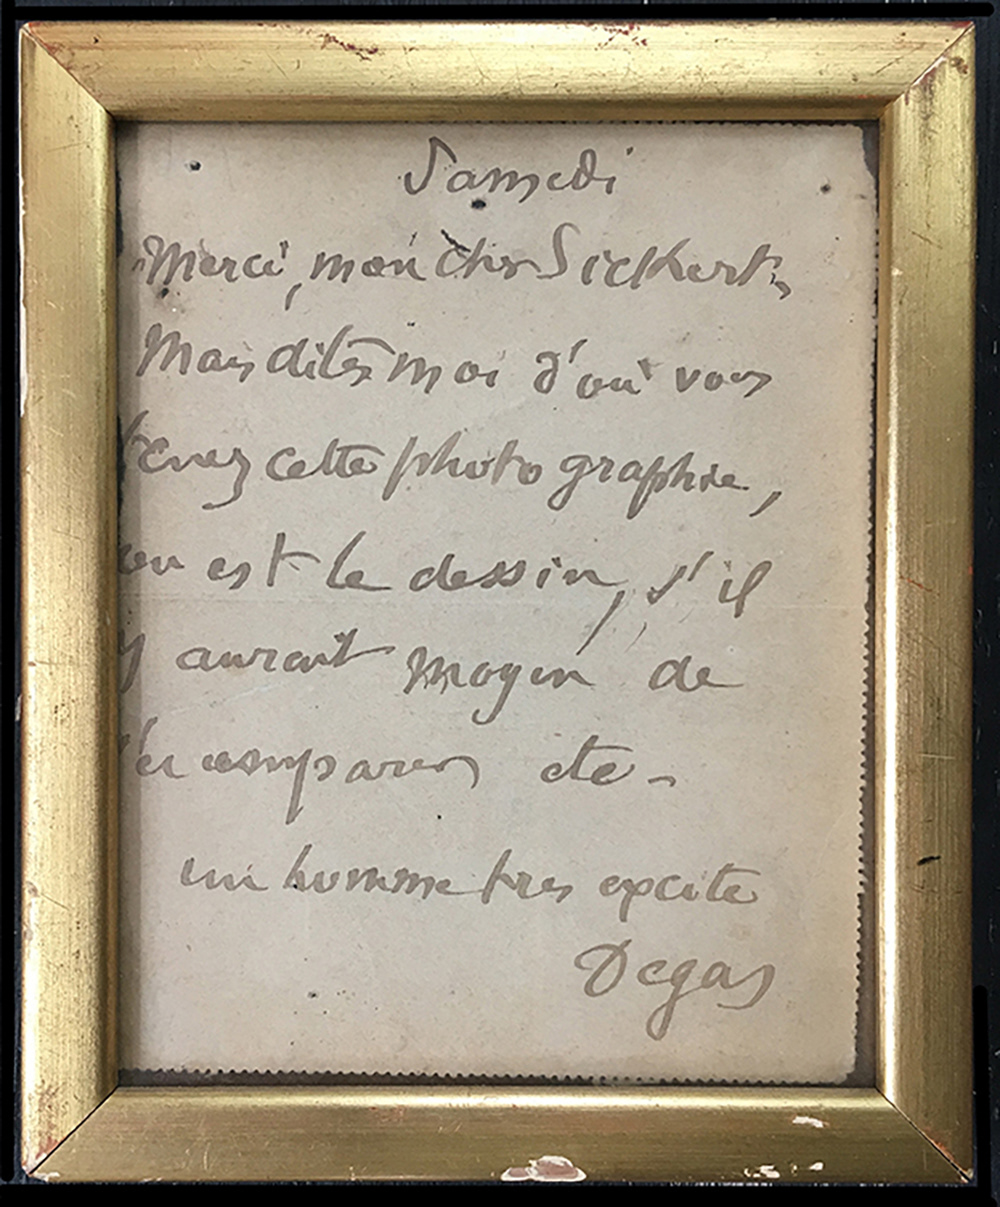 Samedi
Merci, mon cher Sickert,
Mais dites moi d'où vous
tenez cette photographie,
ou est le dessin, s'il
y aurait moyen de
s'en emparer etc -
un homme tres excité
Degas